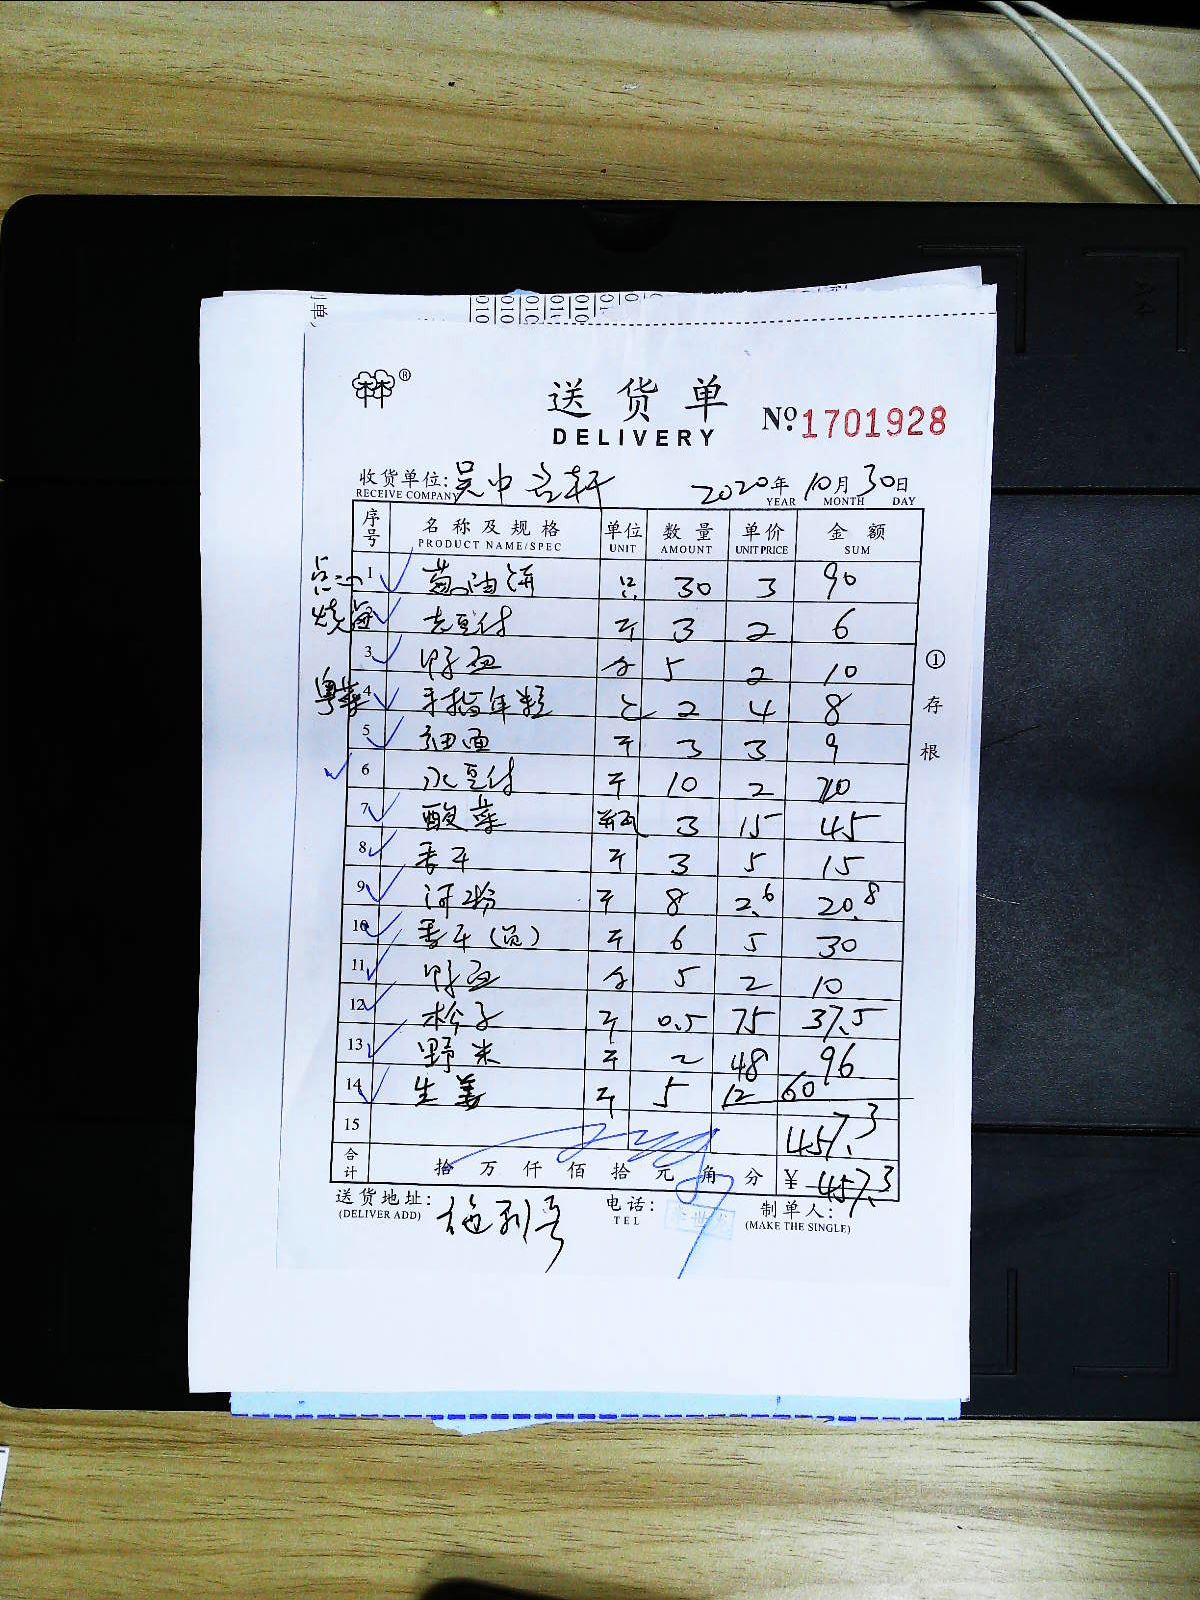 送货单
DELIVERY
Nº 1701928
收货单位: 吴中名轩 2020年10月30日
RECEIVE COMPANY YEAR MONTH DAY
序号 名称及规格 单位 数量 单价 金额
PRODUCT NAME/SPEC UNIT AMOUNT UNIT PRICE SUM
点心 1 葱油饼 只 30 3 90
老豆付 斤 3 2 6
3 鸭血 合 5 2 10
粤菜 4 手指年糕 包 2 4 8
5 细面 斤 3 3 9
6 水豆付 斤 10 2 20
7 酸菜 瓶 3 15 45
8 香干 斤 3 5 15
9 河粉 斤 8 2.6 20.8
10 香干(员) 斤 6 5 30
11 鸭血 合 5 2 10
12 松子 斤 0.5 75 37.5
13 野米 斤 2 48 96
14 生姜 斤 5 12 60
15 457.3
合计 拾万仟佰拾元角分 ¥ 457.3
送货地址: 电话: 制单人:
(DELIVER ADD) TEL (MAKE THE SINGLE)
①存根